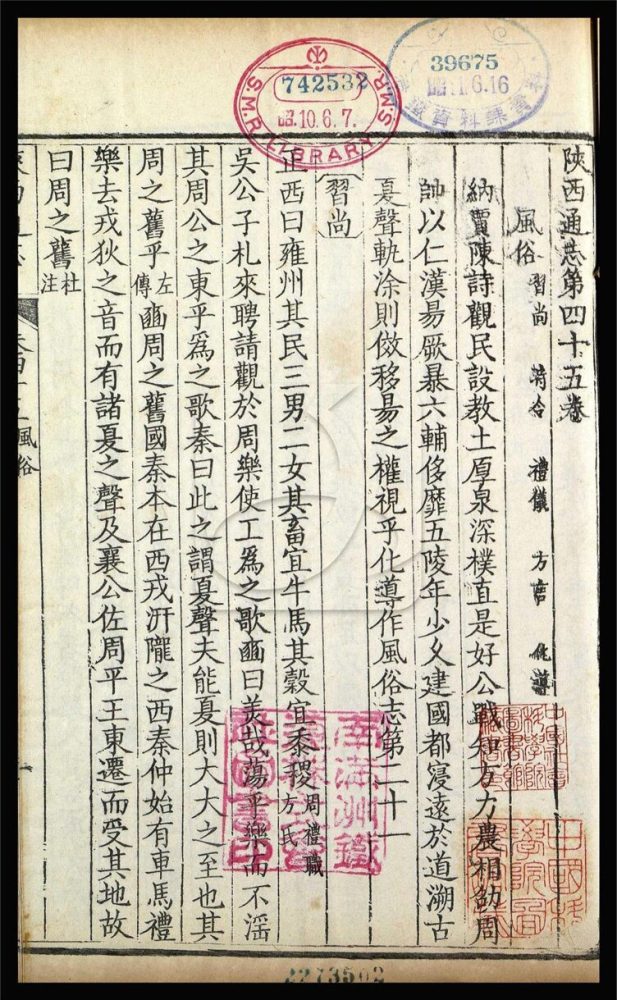 陝西通志第四十五卷
風俗 習尚 時令 禮儀 方言 化導
納賈陳詩觀民設教土厚泉深樸直是好公戰知方力農相劭周
帥以仁漢易厥暴六輔侈靡五陵年少文建國都寖遠於道溯古
夏聲軌涂則倣移易之權視乎化導作風俗志第二十一
習尚
正西曰雍州其民三男二女其畜宜牛馬其穀宜黍稷周禮職方氏
吳公子札來聘請觀於周樂使工爲之歌豳曰美哉蕩乎樂而不淫
其周公之東乎爲之歌秦曰此之謂夏聲夫能夏則大大之至也其
周之舊乎左傳豳周之舊國秦本在西戎汧隴之西秦仲始有車馬禮
樂去戎狄之音而有諸夏之聲及襄公佐周平王東遷而受其地故
曰周之舊杜注
風俗
S.M.R. LIBRARY S.M.R.
742532
昭.10.6.7.
39675
6.16
資料課
南滿洲鐵
2273502